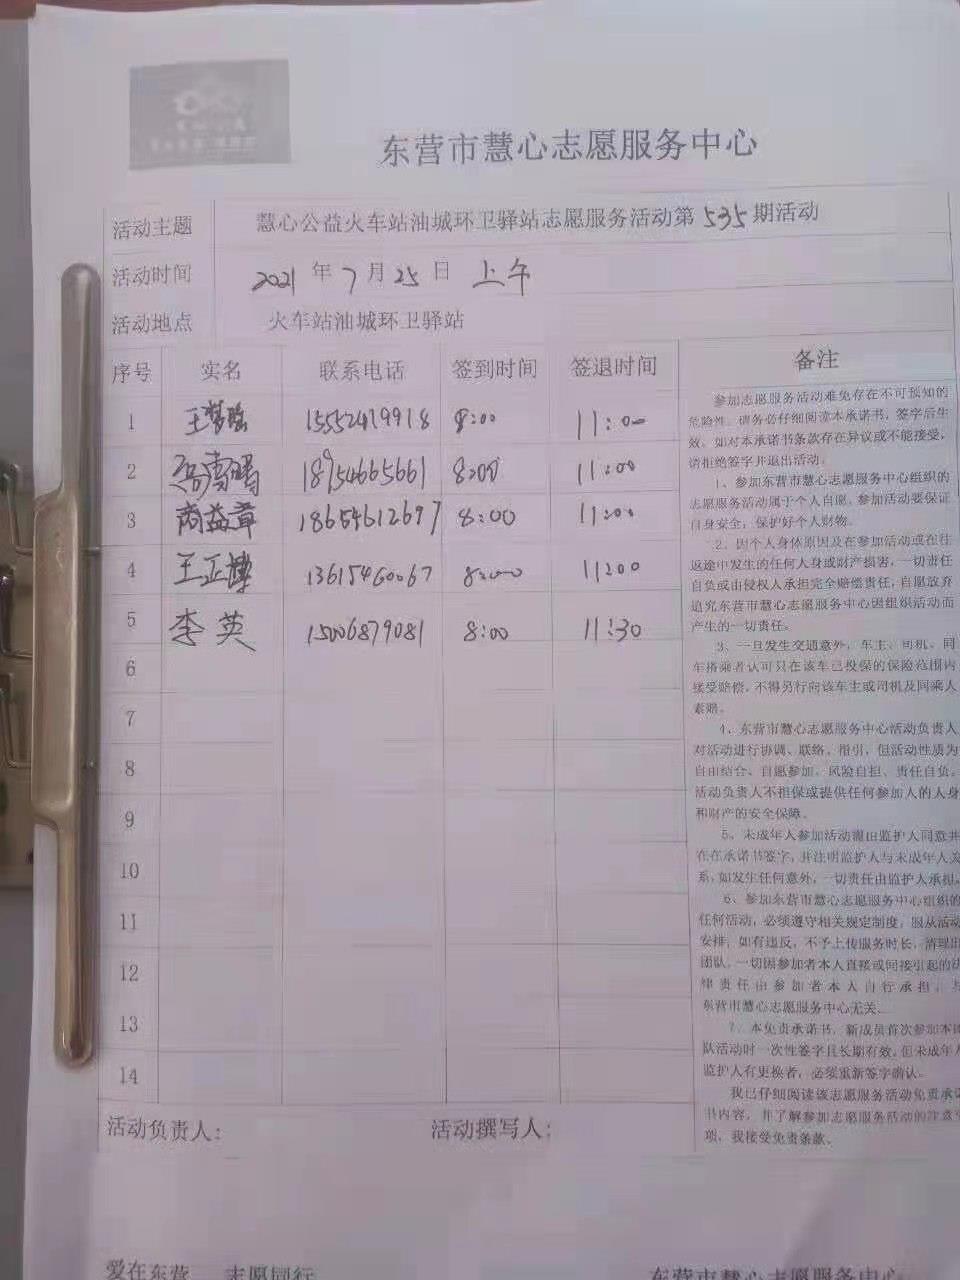 东营市慧心志愿服务中心
活动主题 慧心公益火车站油城环卫驿站志愿服务活动第535期活动
活动时间 2021年7月25日 上午
活动地点 火车站油城环卫驿站
序号 实名 联系电话 签到时间 签退时间 备注
1 王梦瑶 15552419918 8:00 11:00
2 18954665661 8:00 11:00
3 商益章 18654612697 8:00 11:00
4 王正博 13615460067 8:00 11:00
5 李英 15006879081 8:00 11:30
6
7
8
9
10
11
12
13
14
参加志愿服务活动难免存在不可预知的
危险性，请务必仔细阅读本承诺书，签字后生
效。如对本承诺书条款存在异议或不能接受，
请拒绝签字并退出活动。
1、参加东营市慧心志愿服务中心组织的
志愿服务活动属于个人自愿，参加活动要保证
自身安全，保护好个人财物。
2、因个人身体原因及在参加活动或在往
返途中发生的任何人身或财产损害，一切责任
自负或由侵权人承担完全赔偿责任，自愿放弃
追究东营市慧心志愿服务中心因组织活动而
产生的一切责任。
3、一旦发生交通意外，车主、司机、同
车搭乘者认可只在该车已投保的保险范围内
接受赔偿，不得另行向该车主或司机及同乘人
索赔。
4、东营市慧心志愿服务中心活动负责人
对活动进行协调、联络、指引，但活动性质为
自由结合、自愿参加、风险自担、责任自负。
活动负责人不担保或提供任何参加人的人身
和财产的安全保障。
5、未成年人参加活动需由监护人同意并
在在承诺书签字，并注明监护人与未成年人关
系，如发生任何意外，一切责任由监护人承担。
6、参加东营市慧心志愿服务中心组织的
任何活动，必须遵守相关规定制度，服从活动
安排，如有违反，不予上传服务时长，清理出
团队。一切因参加者本人直接或间接引起的法
律责任由参加者本人自行承担，与
东营市慧心志愿服务中心无关。
7、本免责承诺书，新成员首次参加本团
队活动时一次性签字且长期有效，但未成年人
监护人有更换者，必须重新签字确认。
我已仔细阅读该志愿服务活动免责承诺
书内容，并了解参加志愿服务活动的注意事
项，我接受免责条款。
活动负责人： 活动撰写人：
爱在东营 志愿同行 东营市慧心志愿服务中心